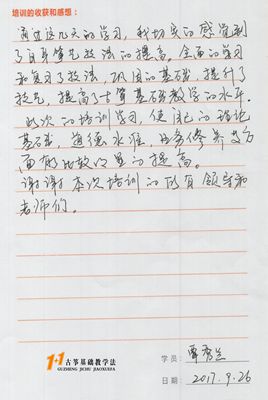 培训的收获和感想:
通过这几天的学习,我切实的感觉到
了自身笔先技法的提高。全面的学习
和复习了技法,巩固的基础,提升了
技艺,提高了古筝基础教学的水平。
此次的培训学习,使自己的理论
基础,道德水准,业务修养等方
面有比较明显的提高。
谢谢本次培训的所有领导和
老师们。
1+1 古筝基础教学法
GUZHENG JICHU JIAOXUEFA
学员:
日期: 2017.9.26